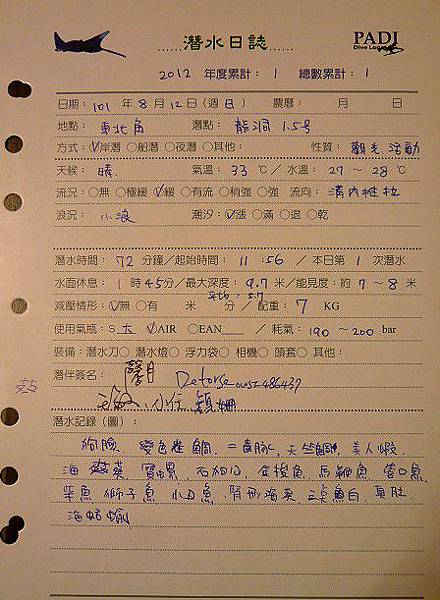 潛水日誌
PADI
Dive Log
2012 年度累計：1 總數累計：1
日期：101 年 8 月 12 日(週日) 農曆： 月 日
地點：東北角 潛點：龍洞 1.5号
方式：✓岸潛 ○船潛 ○夜潛 ○其他： 性質：觀光活動
天候：晴. 氣溫：33 ℃／水溫：27～28℃
流況：○無 ○極緩 ✓緩 ○有流 ○稍強 ○強 流向：灣內
浪況：小浪 潮汐：✓漲 ○滿 ○退 ○乾
潛水時間：72 分鐘／起始時間：11：56 ／本日第 1 次潛水
水面休息：1 時 45分／最大深度：9.7 米／能見度：約 7～8 米
平均：5.7
減壓情形：✓無 ○有 米 分／配重：7 KG
使用氣瓶：S ✓AIR ○EAN ／耗氣：190 ～200 bar
裝備：○潛水刀 ○潛水燈 ○浮力袋 ○相機 ○頭套 ○其他：
潛伴簽名： 486437
潛水記錄(圖)：
狗 變色雀鯛 豚, 天竺鯛, 美人蝦,
海 寶 石 金梭魚 魚 管口魚
柴魚 獅子魚 小丑魚 腎形海
海蛞蝓